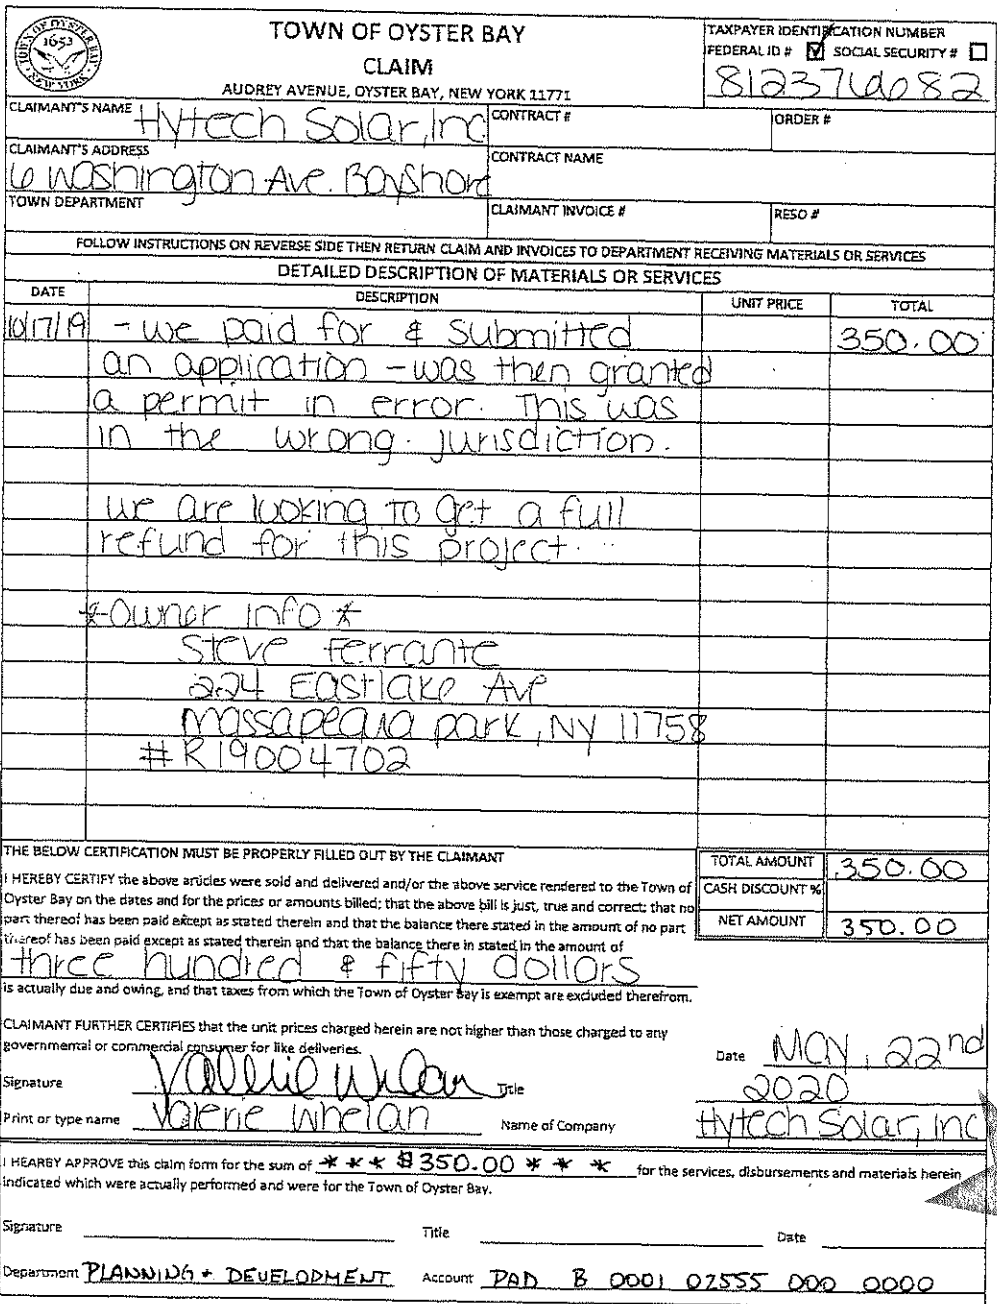 TOWN OF OYSTER BAY
CLAIM
AUDREY AVENUE, OYSTER BAY, NEW YORK 11771
TOWN OF OYSTER BAY
1653
NEW YORK
TAXPAYER IDENTIFICATION NUMBER
FEDERAL ID # SOCIAL SECURITY #
812376682
CLAIMANT'S NAME Hytech Solar, Inc
CONTRACT #
ORDER #
CLAIMANT'S ADDRESS
6 Washington Ave. Bayshore
CONTRACT NAME
TOWN DEPARTMENT
CLAIMANT INVOICE #
RESO #
FOLLOW INSTRUCTIONS ON REVERSE SIDE THEN RETURN CLAIM AND INVOICES TO DEPARTMENT RECEIVING MATERIALS OR SERVICES
DETAILED DESCRIPTION OF MATERIALS OR SERVICES
DATE DESCRIPTION UNIT PRICE TOTAL
10/17/19 - we paid for & submitted 350.00
an application - was then granted
a permit in error. This was
in the wrong jurisdiction.
we are looking to get a full
refund for this project.
*Owner info*
Steve Ferrante
224 Eastlake Ave
Massapequa park, NY 11758
#R19004702
THE BELOW CERTIFICATION MUST BE PROPERLY FILLED OUT BY THE CLAIMANT
TOTAL AMOUNT 350.00
CASH DISCOUNT %
NET AMOUNT 350.00
I HEREBY CERTIFY the above articles were sold and delivered and/or the above service rendered to the Town of
Oyster Bay on the dates and for the prices or amounts billed; that the above bill is just, true and correct; that no
part thereof has been paid except as stated therein and that the balance there stated in the amount of no part
thereof has been paid except as stated therein and that the balance there in stated in the amount of
three hundred & fifty dollars
is actually due and owing, and that taxes from which the Town of Oyster Bay is exempt are excluded therefrom.
CLAIMANT FURTHER CERTIFIES that the unit prices charged herein are not higher than those charged to any
governmental or commercial consumer for like deliveries.
Date May, 22nd
2020
Signature Valerie Whelan Title
Print or type name Valerie Whelan Name of Company Hytech Solar, inc
I HEARBY APPROVE this claim form for the sum of * * * $350.00 * * * for the services, disbursements and materials herein
indicated which were actually performed and were for the Town of Oyster Bay.
Signature Title Date
Department PLANNING + DEVELOPMENT Account PAD B 0001 02555 000 0000